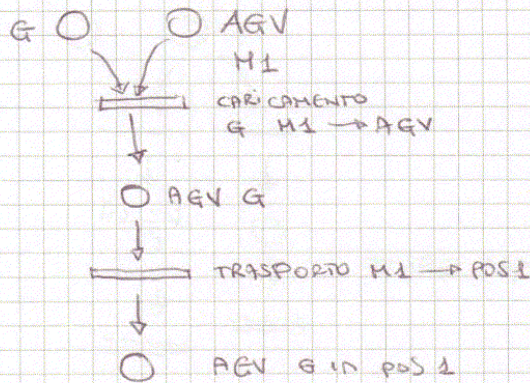 G AGV
M1
CARICAMENTO
G M1 → AGV
AGV G
TRASPORTO M1 → POS1
AGV G in pos 1